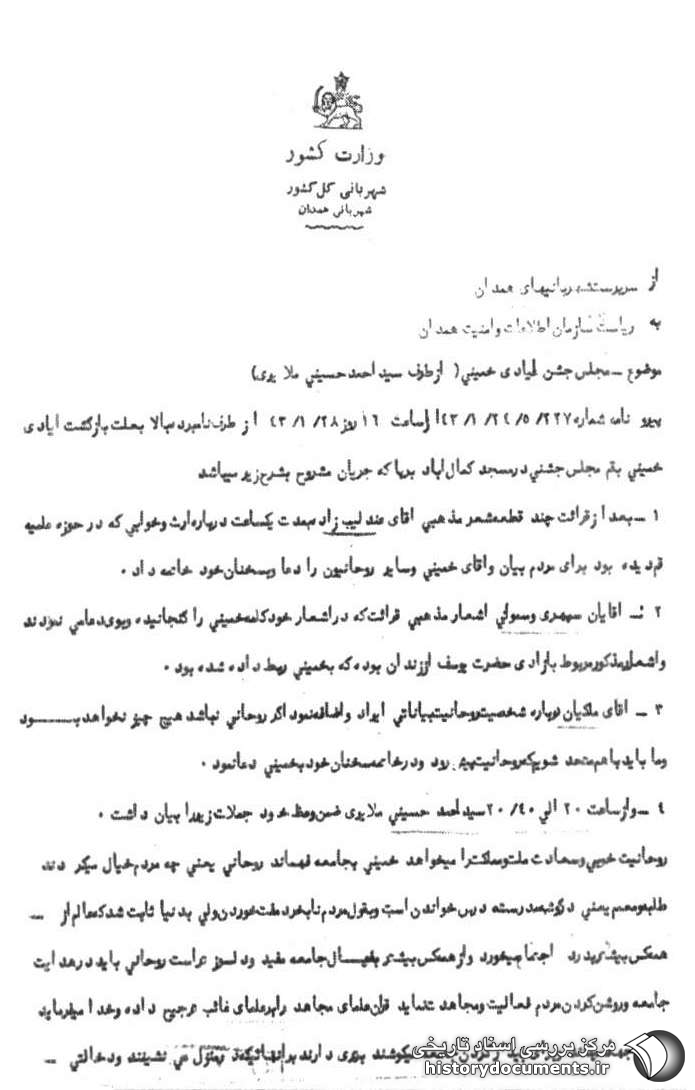 وزارت کشور
شهربانی کل کشور
شهربانی همدان
از سرپرست شهربانیهای همدان
به ریاست سازمان اطلاعات و امنیت همدان
موضوع – مجلس جشن خمینی ( از طرف سید احمد حسینی ملایری)
پیرو نامه شماره ۲۲۷/ ۵/ ۲۴/ ۱/ ۴۳ از ساعت ۱۶ روز ۲۸/ ۱/ ۴۳ از طرف نامبرده بالا بعلت بازگشت ایادی
خمینی بقم مجلس جشنی در مسجد کمال آباد برپا که جریان مشروح بشرح زیر میباشد
۱ – بعد از قرائت چند قطعه شعر مذهبی اقای عندلیب زاده بمدت یکساعت درباره ارث و خوابی که در حوزه علمیه
قم دیده بود برای مردم بیان و اقای خمینی و سایر روحانیون را دعا و بسخنان خود خاتمه داد .
۲ – اقایان سپهری و سمواتی اشعار مذهبی قرائت که در اشعار خود کلمه خمینی را گنجانیده و بوی دعا می نمودند
و اشعار مذکور مربوط بازادی حضرت یوسف از زندان بوده که بخمینی ربط داده شده بود .
۳ – اقای ملکیان درباره شخصیت روحانیت بیاناتی ایراد و اضافه نمود اگر روحانی نباشد هیچ چیز نخواهد بود
و ما باید باهم متحد شویم که روحانیت رود و در خاتمه سخنان خود بخمینی دعا نمود .
۴ – و از ساعت ۲۰ الی ۲۰/۴۰ سید احمد حسینی ملایری ضمن وعظ خود جملات زیر را بیان داشت .
روحانیت خوبی و سعادت ملت و مملکت را میخواهد خمینی بجامعه فهماند روحانی یعنی چه مردم خیال میکردند
طلبه و معمم یعنی در گوشه مدرسه درس خواندن است و بقول مردم نابخرد مفت خوردن ولی بدنیا ثابت شد که عالم از –
همه کس بیشتر بدرد اجتماع میخورد و از همه کس بیشتر بحال جامعه مفید و دلسوزتر است روحانی باید در هدایت
جامعه و روشن کردن مردم فعالیت و مجاهدت نماید قران علمای مجاهد را بر علمای غائب ترجیح داده و خدا میفرماید
کردن میکوشند برتری دارند بر انهائیکه در منزل می نشینند و دخالتی –
مرکز بررسی اسناد تاریخی
historydocuments.ir